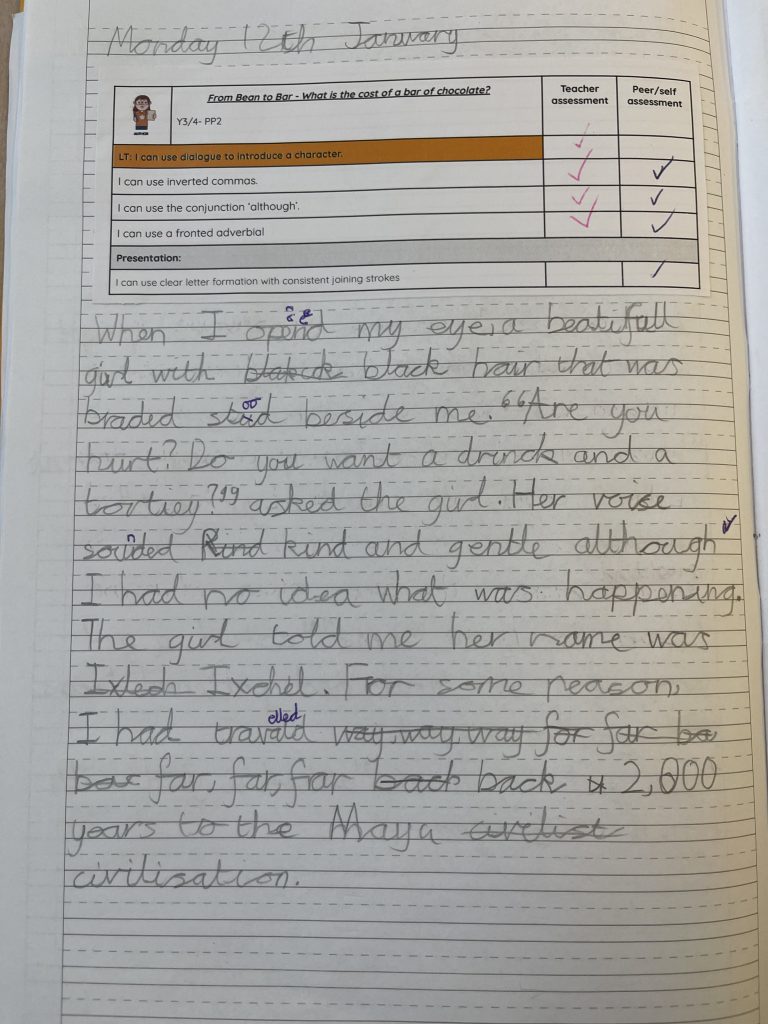 Monday 12th January
From Bean to Bar - What is the cost of a bar of chocolate?
Y3/4- PP2
Teacher assessment
Peer/self assessment
AUTHOR
LT: I can use dialogue to introduce a character.
I can use inverted commas.
I can use the conjunction ‘although’.
I can use a fronted adverbial
Presentation:
I can use clear letter formation with consistent joining strokes
When I opend my eye, a beatifull
girl with black hair that was
braded stood beside me. “Are you
hurt? Do you want a drinck and a
tortiey?” asked the girl. Her voise
sounded kind and gentle although
I had no idea what was happening.
The girl told me her name was
Ixchel. For some reason,
I had travelled
far, far, far back 2,000
years to the Maya
civilisation.